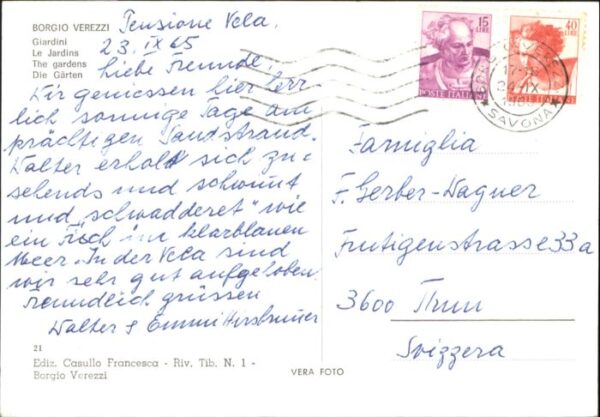 BORGIO VEREZZI
Giardini
Le Jardins
The gardens
Die Gärten
Pensione Vela.
23. IX 65
Liebe Freunde,
Wir geniessen hier herr
lich sonnige Tage am
prächtigen Sandstrand.
Walter erholt sich zu-
sehends und schwimmt
und „schwadderet" wie
ein Fisch im klarblauen
Meer. In der Vela sind
wir sehr gut aufgehoben.
Freundlich grüssen
Walter & Emmi Hirsbrunner
21
Ediz. Casullo Francesca - Riv. Tib. N. 1 -
Borgio Verezzi
VERA FOTO
15
LIRE
POSTE ITALIANE
40
LIRE
POSTE ITALIANE
VEREZZI
SAVONA
Famiglia
F. Gerber-Wagner
Frutigenstrasse 33a
3600 Thun
Svizzera